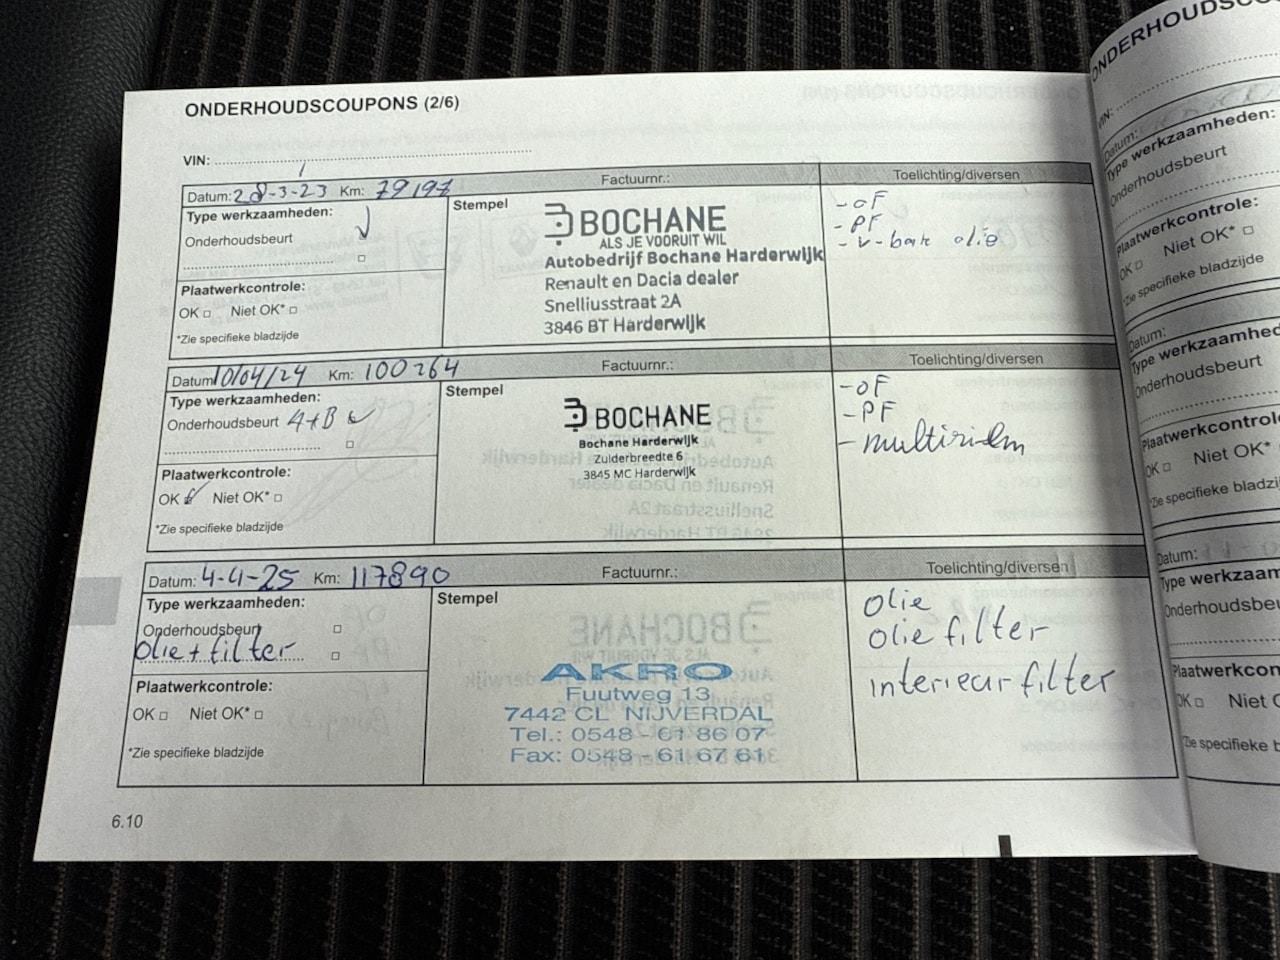 ONDERHOUDSCOUPONS (2/6)
VIN:
Datum: 28-3-23 Km: 79197 Factuurnr.: Toelichting/diversen
Type werkzaamheden:
Onderhoudsbeurt
Plaatwerkcontrole:
OK Niet OK*
*Zie specifieke bladzijde
Stempel
BOCHANE
ALS JE VOORUIT WIL
Autobedrijf Bochane Harderwijk
Renault en Dacia dealer
Snelliusstraat 2A
3846 BT Harderwijk
- OF
- PF
- v-bak olie
Datum 10/04/24 Km: 100264 Factuurnr.: Toelichting/diversen
Type werkzaamheden:
Onderhoudsbeurt A+B
Plaatwerkcontrole:
OK Niet OK*
*Zie specifieke bladzijde
Stempel
BOCHANE
Bochane Harderwijk
Zuiderbreedte 6
3845 MC Harderwijk
- OF
- PF
- multiriem
Datum: 4-4-25 Km: 117890 Factuurnr.: Toelichting/diversen
Type werkzaamheden:
Onderhoudsbeurt
Olie + filter
Plaatwerkcontrole:
OK Niet OK*
*Zie specifieke bladzijde
Stempel
AKRO
Fuutweg 13
7442 CL NIJVERDAL
Tel.: 0548 - 61 86 07
Fax: 0548 - 61 67 61
Olie
Olie filter
interieur filter
6.10
ONDERHOUDSCOU
VIN:
Datum:
Type werkzaamheden:
Onderhoudsbeurt
Plaatwerkcontrole:
OK Niet OK*
*Zie specifieke bladzijde
Datum:
Type werkzaamhed
Onderhoudsbeurt
Plaatwerkcontrol
OK Niet OK*
*Zie specifieke bladzi
Datum:
Type werkzaam
Onderhoudsbeu
Plaatwerkcon
OK Niet O
*Zie specifieke b